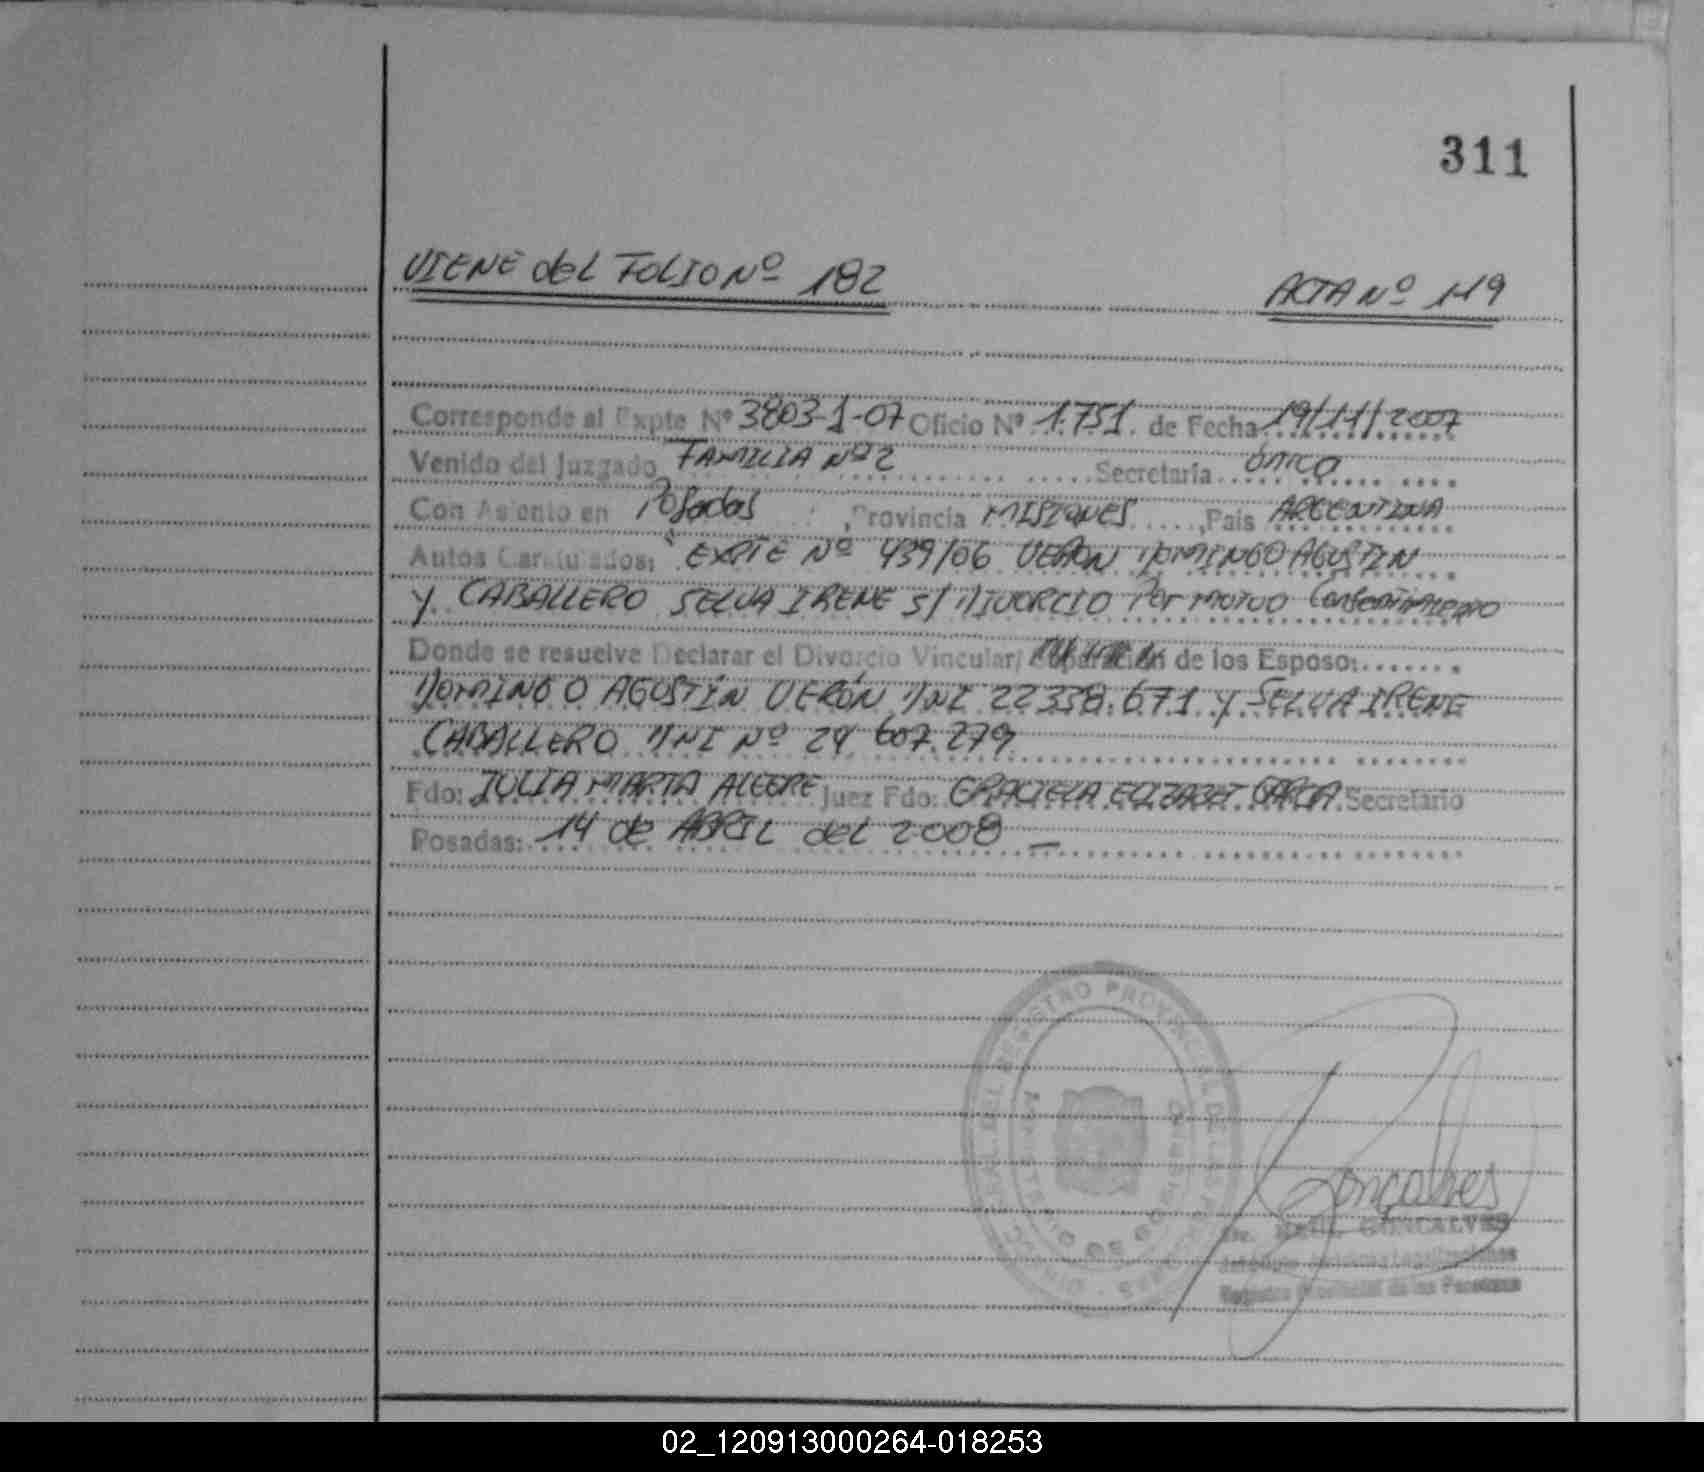 311
VIENE del FOLIO Nº 182 ACTA Nº 119
Corresponde al Expte Nº 3803-1-07 Oficio Nº 1.751. de Fecha 19/11/2007
Venido del Juzgado FAMILIA Nº 2 Secretaría única
Con Asiento en Posadas, Provincia MISIONES, País ARGENTINA
Autos Caratulados: EXPTE Nº 439/06 VERON DOMINGO AGUSTIN
y CABALLERO SELVA IRENE S/ DIVORCIO Por MUTUO Consentimiento
Donde se resuelve Declarar el Divorcio Vincular/ Separación de los Esposo:
DOMINGO AGUSTÍN VERÓN DNI 22.338.671 y SELVA IRENE
CABALLERO DNI Nº 24 607.279
Fdo: JULIA MARTA ALEGRE Juez Fdo: GRACIELA ELIZABET GARCIA Secretario
Posadas: 14 de ABRIL del 2008 —
REGISTRO PROVINCIAL DE LAS
Goncalves
RAUL GONCALVES
Registro Provincial de las Personas
02_120913000264-018253